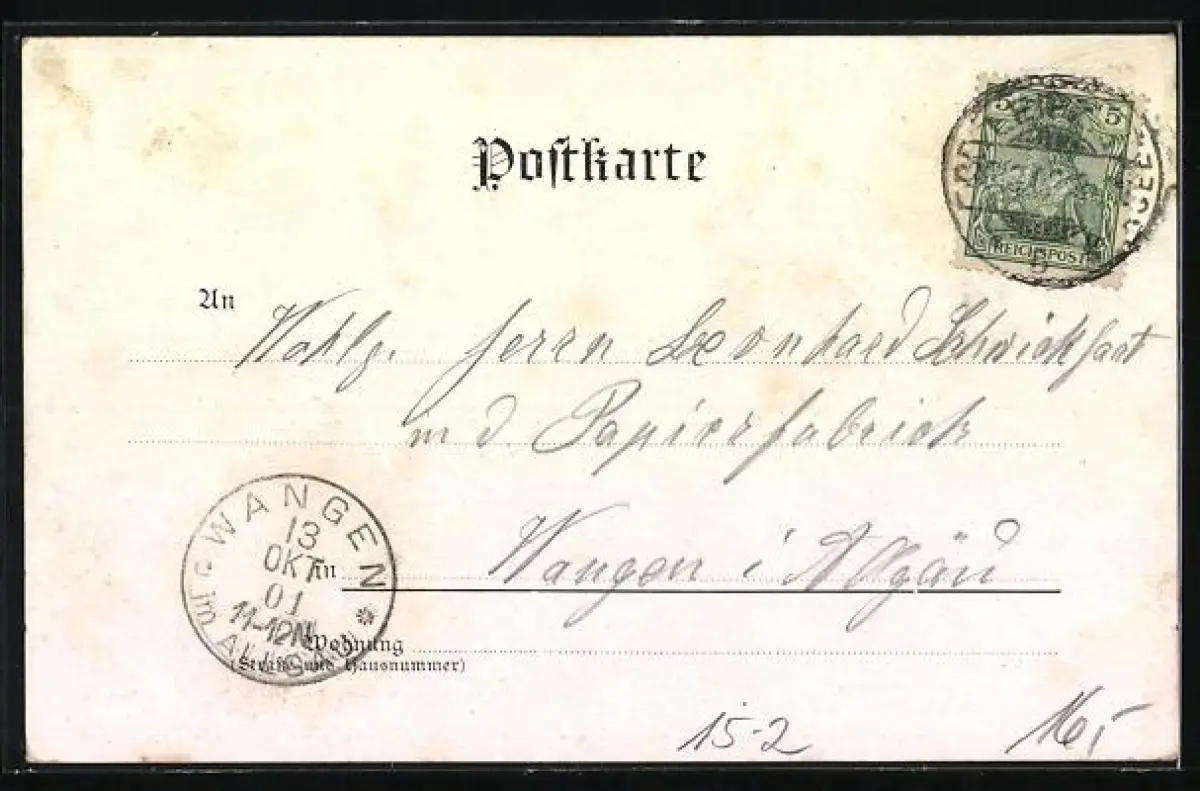 Postkarte
5 5
REICHSPOST
An
Wohlg. Herrn Leonhard Schwickfart
in d. Papierfabrick
WANGEN
13
OKT
01
11-12N
im ALLGÄU
in Wangen i Allgäu
Wohnung
(Straße und Hausnummer)
15-2
16,-